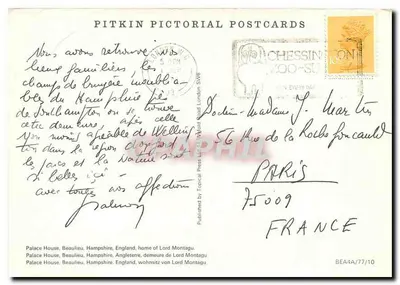 PITKIN PICTORIAL POSTCARDS
CHESSINGTON
ZOO-SU
Nous avons retrouvé nos
lieux familiers, les
champs de bruyère, inoubliables
du Hampshire. Près
de Southampton on trouve
cette demeure, après celle
non moins agréable de Welling
ton dans la région
le parc et la nature sont
si belles ici
avec toutes nos affections
Docteur-Madame J. Martin
76 Rue de la Rochefoucauld
PARIS
75009
FRANCE
Published by Topical Press London SW8
Palace House, Beaulieu, Hampshire, England, home of Lord Montagu
Palace House, Beaulieu, Hampshire, Angleterre, demeure de Lord Montagu
Palace House, Beaulieu, Hampshire, England, wohnsitz von Lord Montagu
BEA4A/77/10